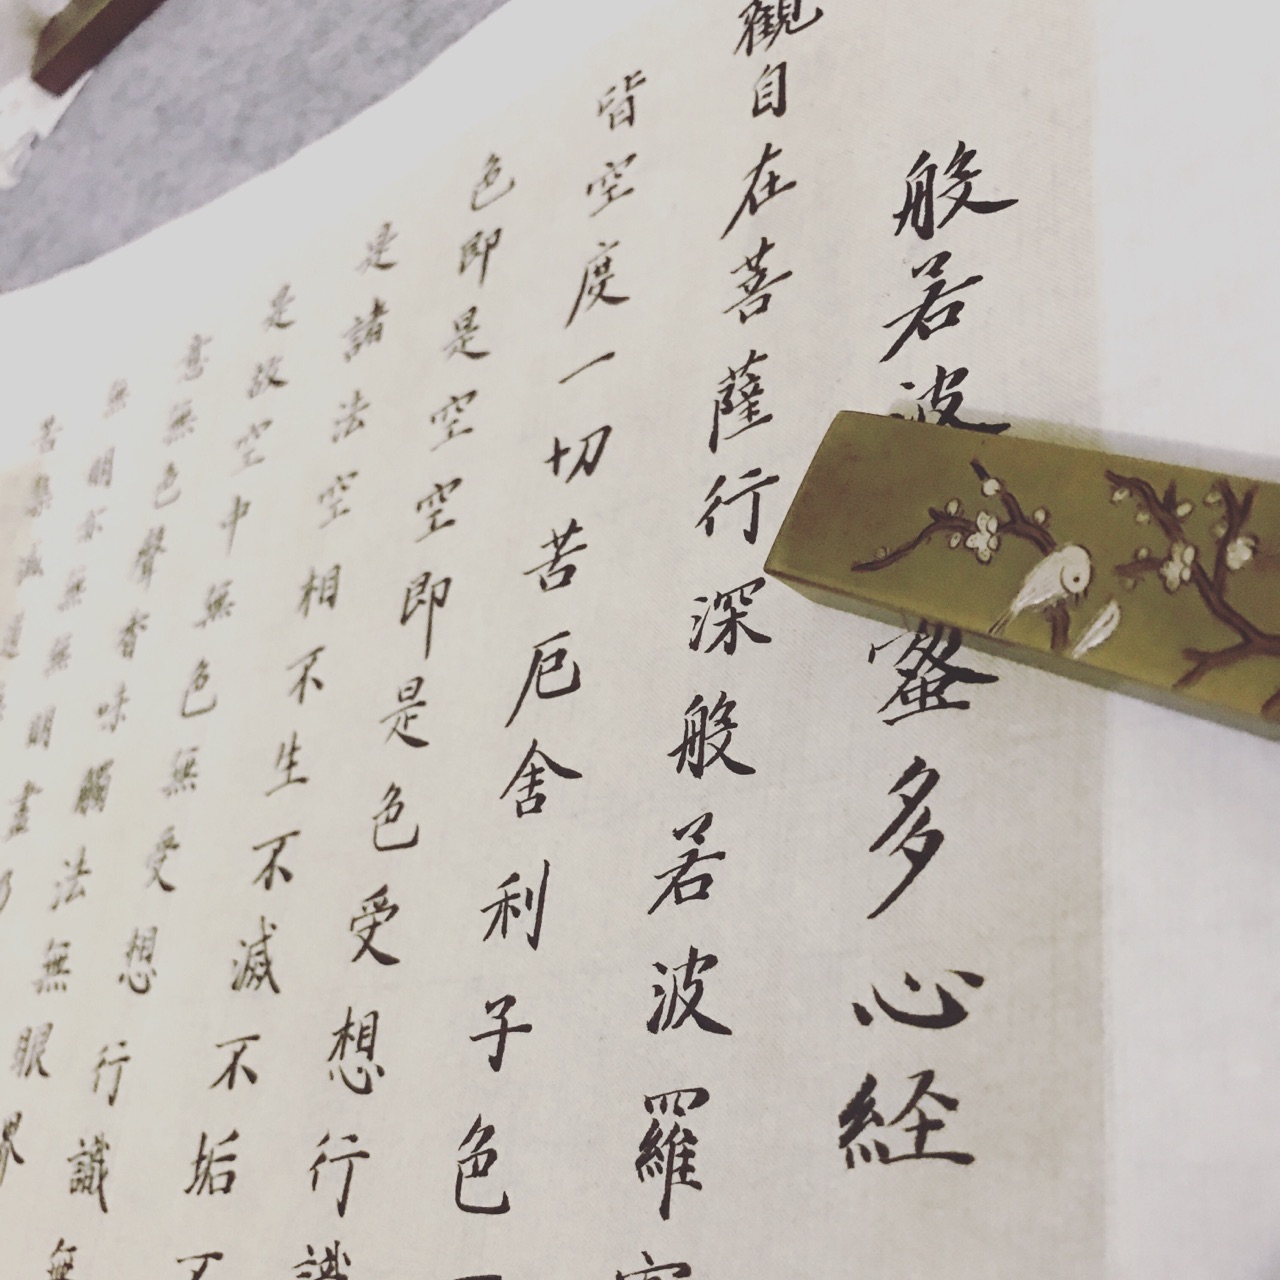 般若波蜜多心経
觀自在菩薩行深般若波羅
皆空度一切苦厄舍利子色
色即是空空即是色受想行識
是諸法空相不生不滅不垢不
是故空中無色無受想行識無
意無色聲香味觸法無眼界
無明亦無無明盡
苦集滅道